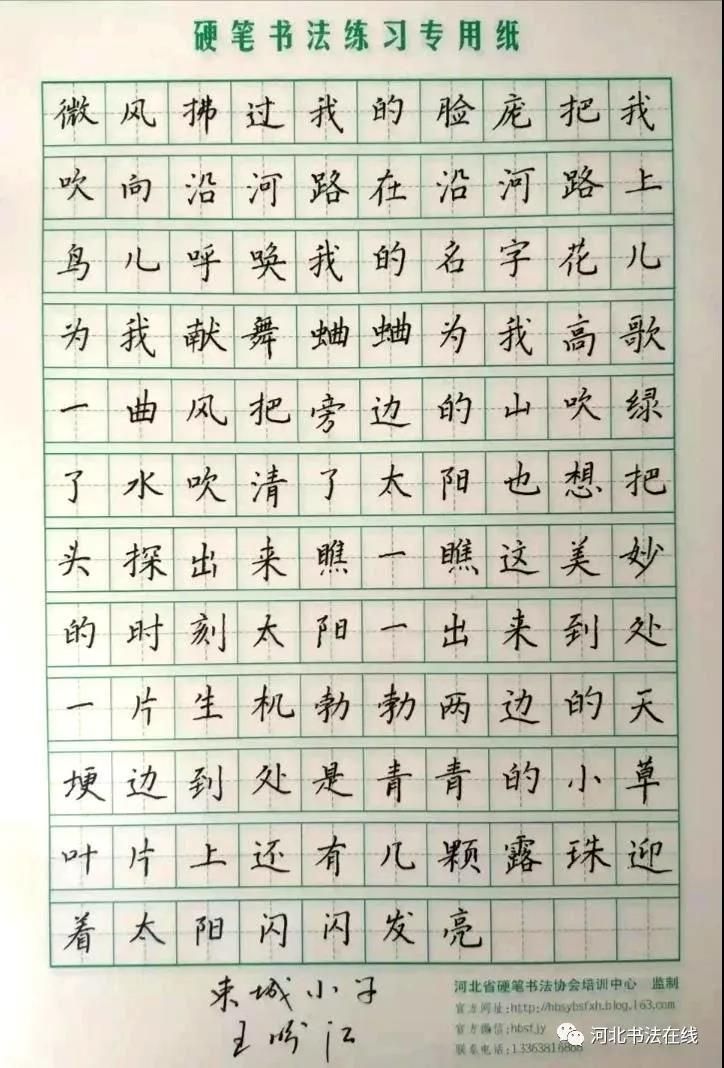 硬笔书法练习专用纸
微风拂过我的脸庞把我
吹向沿河路在沿河路上
鸟儿呼唤我的名字花儿
为我献舞蛐蛐为我高歌
一曲风把旁边的山吹绿
了水吹清了太阳也想把
头探出来瞧一瞧这美妙
的时刻太阳一出来到处
一片生机勃勃两边的天
埂边到处是青青的小草
叶片上还有几颗露珠迎
着太阳闪闪发亮
东城小子
王 江
河北省硬笔书法协会培训中心 监制
官方网址:http://hbsybsfxh.blog.163.com
官方微信:hbsfjy
联系电话:13363816868
河北书法在线